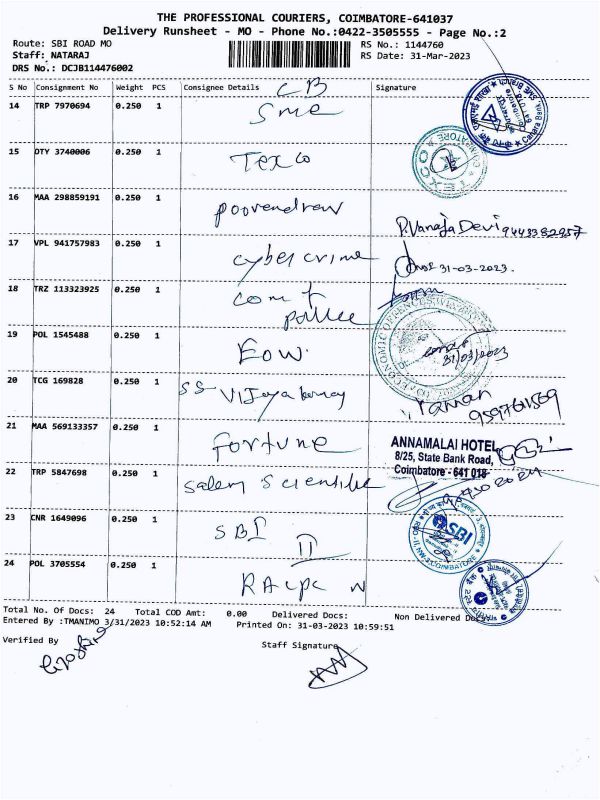 THE PROFESSIONAL COURIERS, COIMBATORE-641037
Delivery Runsheet - MO - Phone No.:0422-3505555 - Page No.:2
Route: SBI ROAD MO
RS No.: 1144760
Staff: NATARAJ
RS Date: 31-Mar-2023
DRS No.: DCJB114476002
S No Consignment No Weight PCS Consignee Details Signature
CB
14 TRP 7970694 0.250 1 Sme
15 DTY 3740006 0.250 1 Texco
16 MAA 298859191 0.250 1 poorendran
P. Vanaja Devi 9443382957
17 VPL 941757983 0.250 1 cyber crime
31-03-2023.
18 TRZ 113323925 0.250 1 com f
police
19 POL 1545488 0.250 1 EOW.
31/03/2023
20 TCG 169828 0.250 1 SS Vijaya
21 MAA 569133357 0.250 1 fortune
ANNAMALAI HOTEL
8/25, State Bank Road,
Coimbatore - 641 018
22 TRP 5847698 0.250 1 Salem Scientific
23 CNR 1649096 0.250 1 SBI
SBI
II
24 POL 3705554 0.250 1 RACPC N
Total No. Of Docs: 24 Total COD Amt: 0.00 Delivered Docs: Non Delivered Docs:
Entered By :TMANIMO 3/31/2023 10:52:14 AM Printed On: 31-03-2023 10:59:51
Verified By
Staff Signature